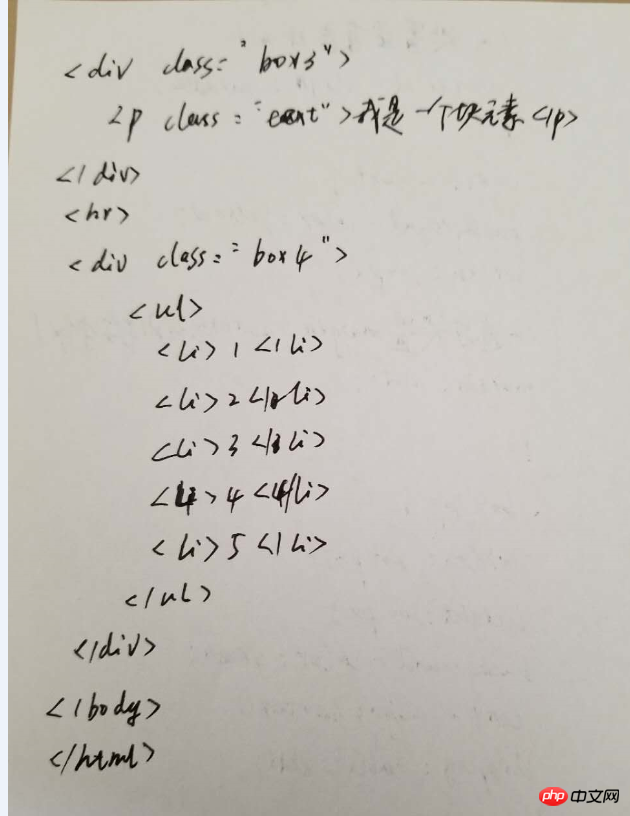 <div class="box3">
<p class="eat">我是一个块元素</p>
</div>
<hr>
<div class="box4">
<ul>
<li>1</li>
<li>2</li>
<li>3</li>
<li>4</li>
<li>5</li>
</ul>
</div>
</body>
</html>
php 中文网